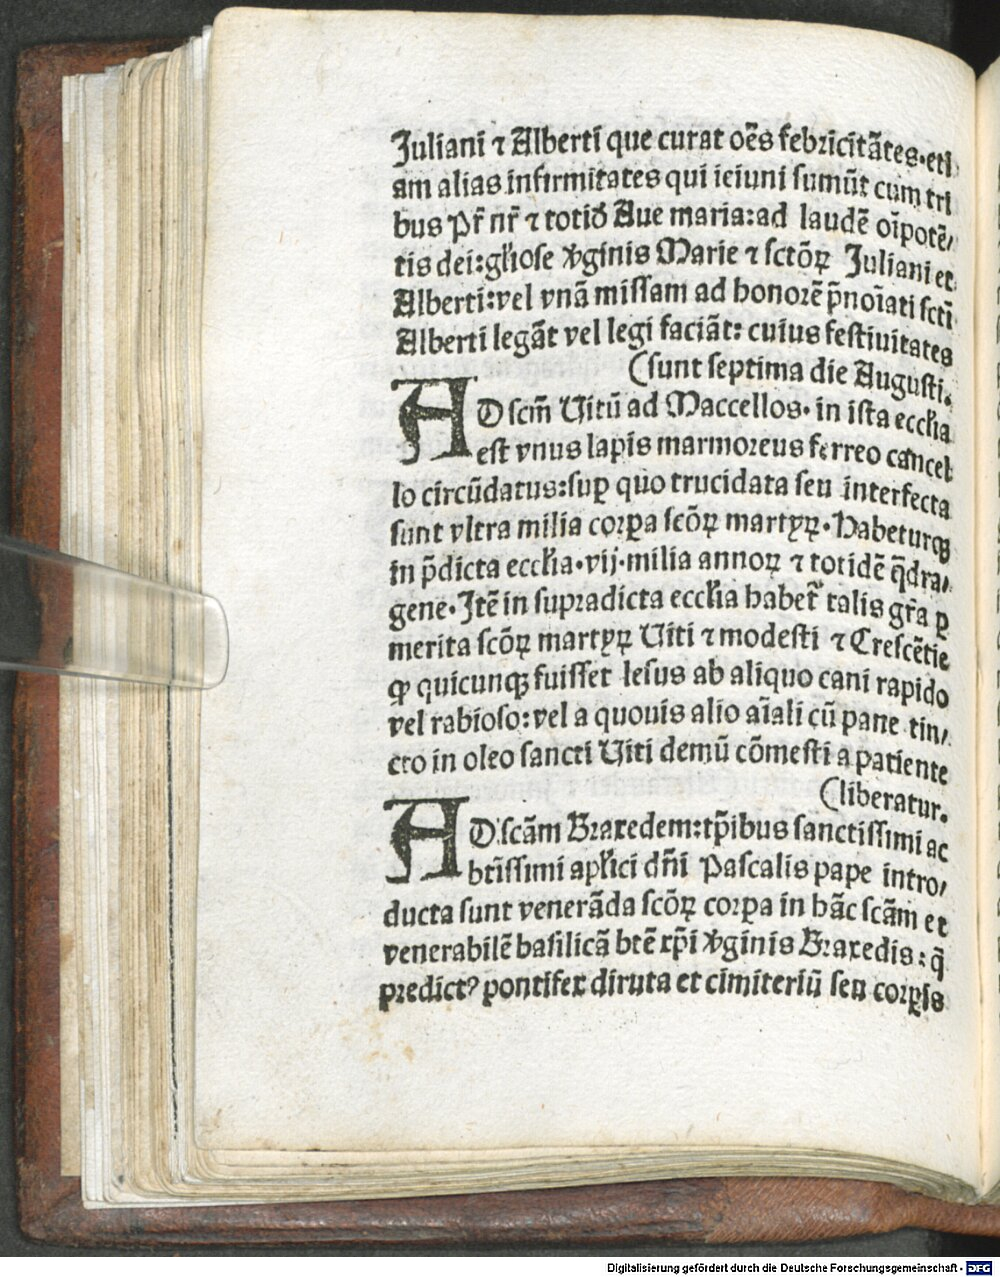 Juliani ⁊ Alberti que curat oēs febricitātes·eti
am alias infirmitates qui ieiuni sumūt cum tri
bus Pr̄ nr̄ ⁊ totiō Aue maria:ad laudē oīpotē/
tis dei:gl'iose v̓ginis Marie ⁊ sctōꝝ Juliani et
Alberti:vel vnā missam ad honorē p̄noīati scti
Alberti legāt vel legi faciāt: cuius festiuitates
(sunt septima die Augusti.
AD scm̄ Uitū ad Maccellos· in ista eccl'ia
est vnus lapis marmoreus ferreo cancel
lo circūdatus:sup̲ quo trucidata seu interfecta
sunt vltra milia corp̲a scōꝝ martyꝝ·Habeturqꝫ
in p̄dicta eccl'ia·vij·milia annoꝝ ⁊ totidē q̄dra/
gene·Itē in supradicta eccl'ia habet᷑ talis gr̄a ꝑ
merita scōꝝ martyꝝ Uiti ⁊ modesti ⁊ Crescētie
ꝙ quicunqꝫ fuisset lesus ab aliquo cani rapido
vel rabioso:vel a quouis alio aīali cū pane tin/
cto in oleo sancti Uiti demū cōmesti a patiente
(liberatur.
AD.scām Braxedem:tp̄ibus sanctissimi ac
btīssimi apl'ici dn̄i Pascalis pape intro/
ducta sunt venerāda scōꝝ corpa in hāc scām et
venerabilē basilicā btē xp̄i v̓ginis Braxedis:q̄
predict⁹ pontifex diruta et cimiteriū seu corꝑis
Digitalisierung gefördert durch die Deutsche Forschungsgemeinschaft - DFG